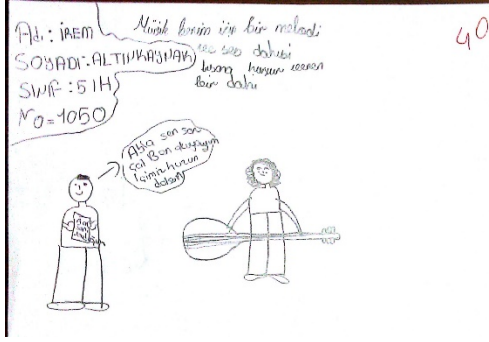 Adı: İREM
SOYADI: ALTINKAYNAK
SINIF: 5/H
No=1050
Müzik benim için bir melodi
ses dahisi
huzur veren
bir dahi
40
Abla sen
çal Ben okuyayım
İçimiz huzur
dolsun